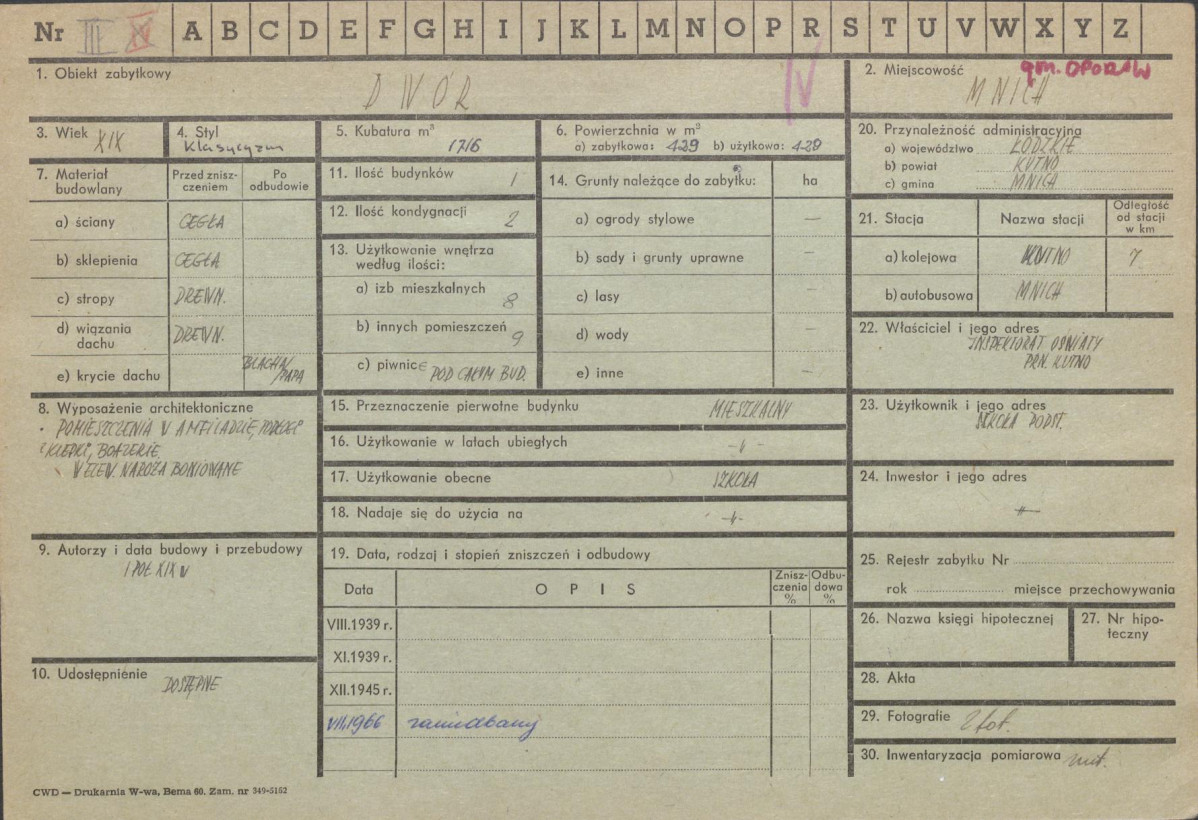 Nr III IV A B C D E F G H I J K L M N O P R S T U V W X Y Z
1. Obiekt zabytkowy
DWÓR
IV
2. Miejscowość
gm. OPORÓW
MNICH
3. Wiek XIX
4. Styl
klasycyzm
5. Kubatura m³
1716
6. Powierzchnia w m³
a) zabytkowa: 429 b) użytkowa: 429
20. Przynależność administracyjna
a) województwo ŁÓDZKIE
b) powiat KUTNO
c) gmina MNICH
7. Materiał budowlany
Przed znisz-
czeniem
Po
odbudowie
a) ściany CEGŁA
b) sklepienia CEGŁA
c) stropy DREWN.
d) wiązania
dachu DREWN.
e) krycie dachu BLACHA/
/PAPA
11. Ilość budynków 1
12. Ilość kondygnacji 2
13. Użytkowanie wnętrza
według ilości:
a) izb mieszkalnych 8
b) innych pomieszczeń 9
c) piwnice POD CAŁYM BUD.
14. Grunty należące do zabytku: ha
a) ogrody stylowe —
b) sady i grunty uprawne —
c) lasy –
d) wody –
e) inne –
21. Stacja
Nazwa stacji
Odległość
od stacji
w km
a) kolejowa KUTNO 7
b) autobusowa MNICH
22. Właściciel i jego adres
INSPEKTORAT OŚWIATY
PRN. KUTNO
8. Wyposażenie architektoniczne
• POMIESZCZENIA W AMFILADZIE, PODŁOGI
Z KLEPKI, BOAZERIE
W ELEW. NAROŻA BONIOWANE
15. Przeznaczenie pierwotne budynku MIESZKALNY
16. Użytkowanie w latach ubiegłych -"-
17. Użytkowanie obecne SZKOŁA
18. Nadaje się do użycia na -"-
23. Użytkownik i jego adres
SZKOŁA PODST.
24. Inwestor i jego adres
-"-
9. Autorzy i data budowy i przebudowy
I POŁ. XIX w
19. Data, rodzaj i stopień zniszczeń i odbudowy
Data
OPIS
Znisz-
czenia
%
Odbu-
dowa
%
VIII.1939 r.
XI.1939 r.
XII.1945 r.
VIII.1966 zaniedbany
25. Rejestr zabytku Nr
rok miejsce przechowywania
26. Nazwa księgi hipotecznej
27. Nr hipo-
teczny
10. Udostępnienie
DOSTĘPNE
28. Akta
29. Fotografie 2 fot.
30. Inwentaryzacja pomiarowa
CWD — Drukarnia W-wa, Bema 60. Zam. nr 349-5162